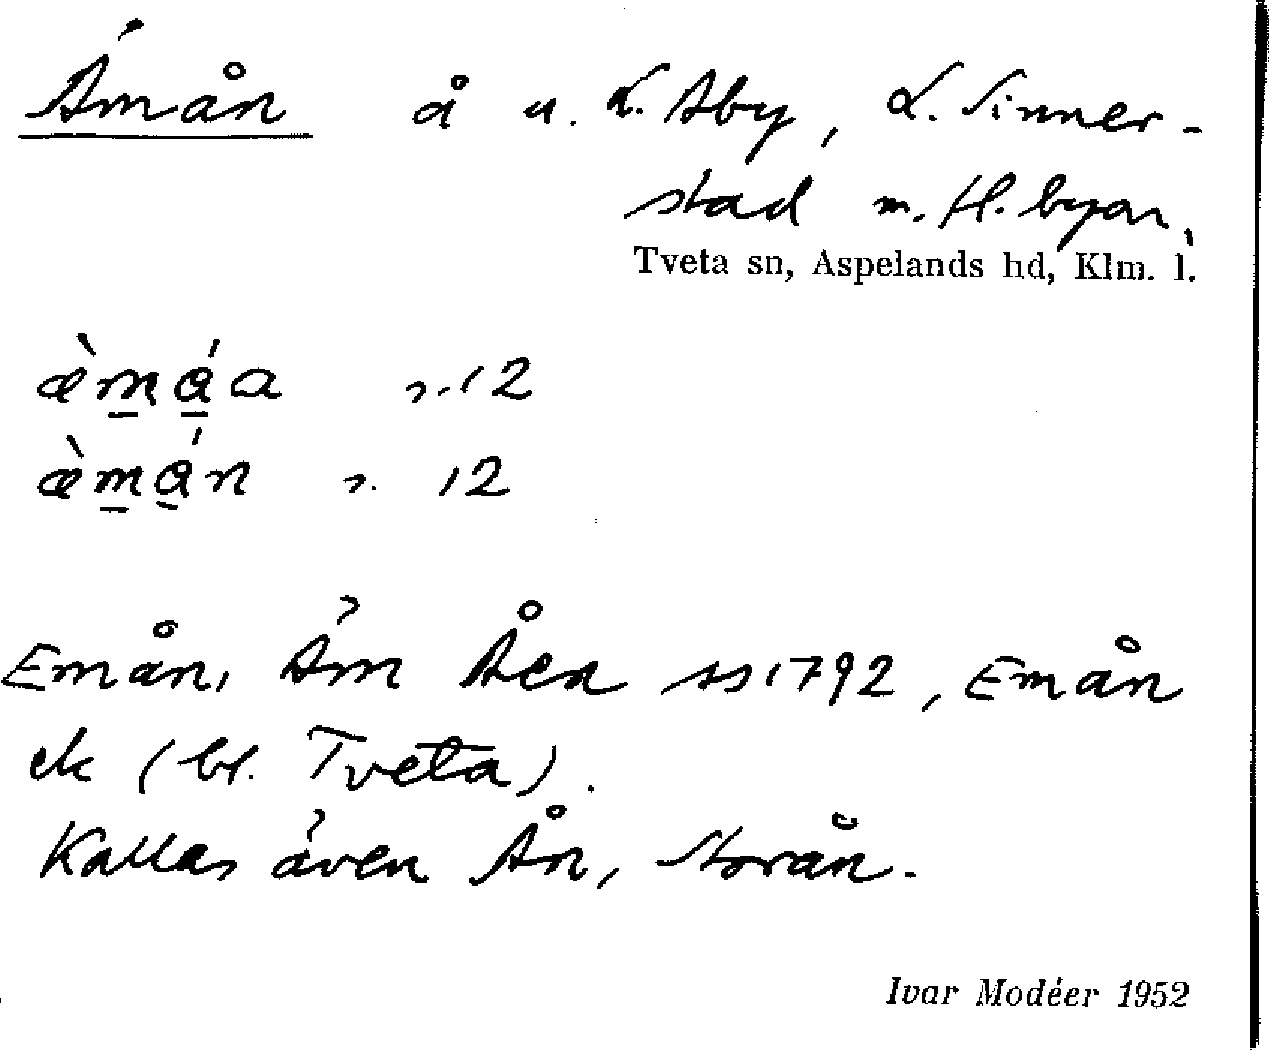 Ämån å u. L. Åby, L. Sinner-
stad m. fl. byar.
Tveta sn, Aspelands hd, Klm. l.
æ̀mǻa s. 12
æ̀mǻn s. 12
Emån, Äm Åen ss 1792, Emån
ek (bl. Tveta).
Kallas även Ån, Storån.
Ivar Modéer 1952